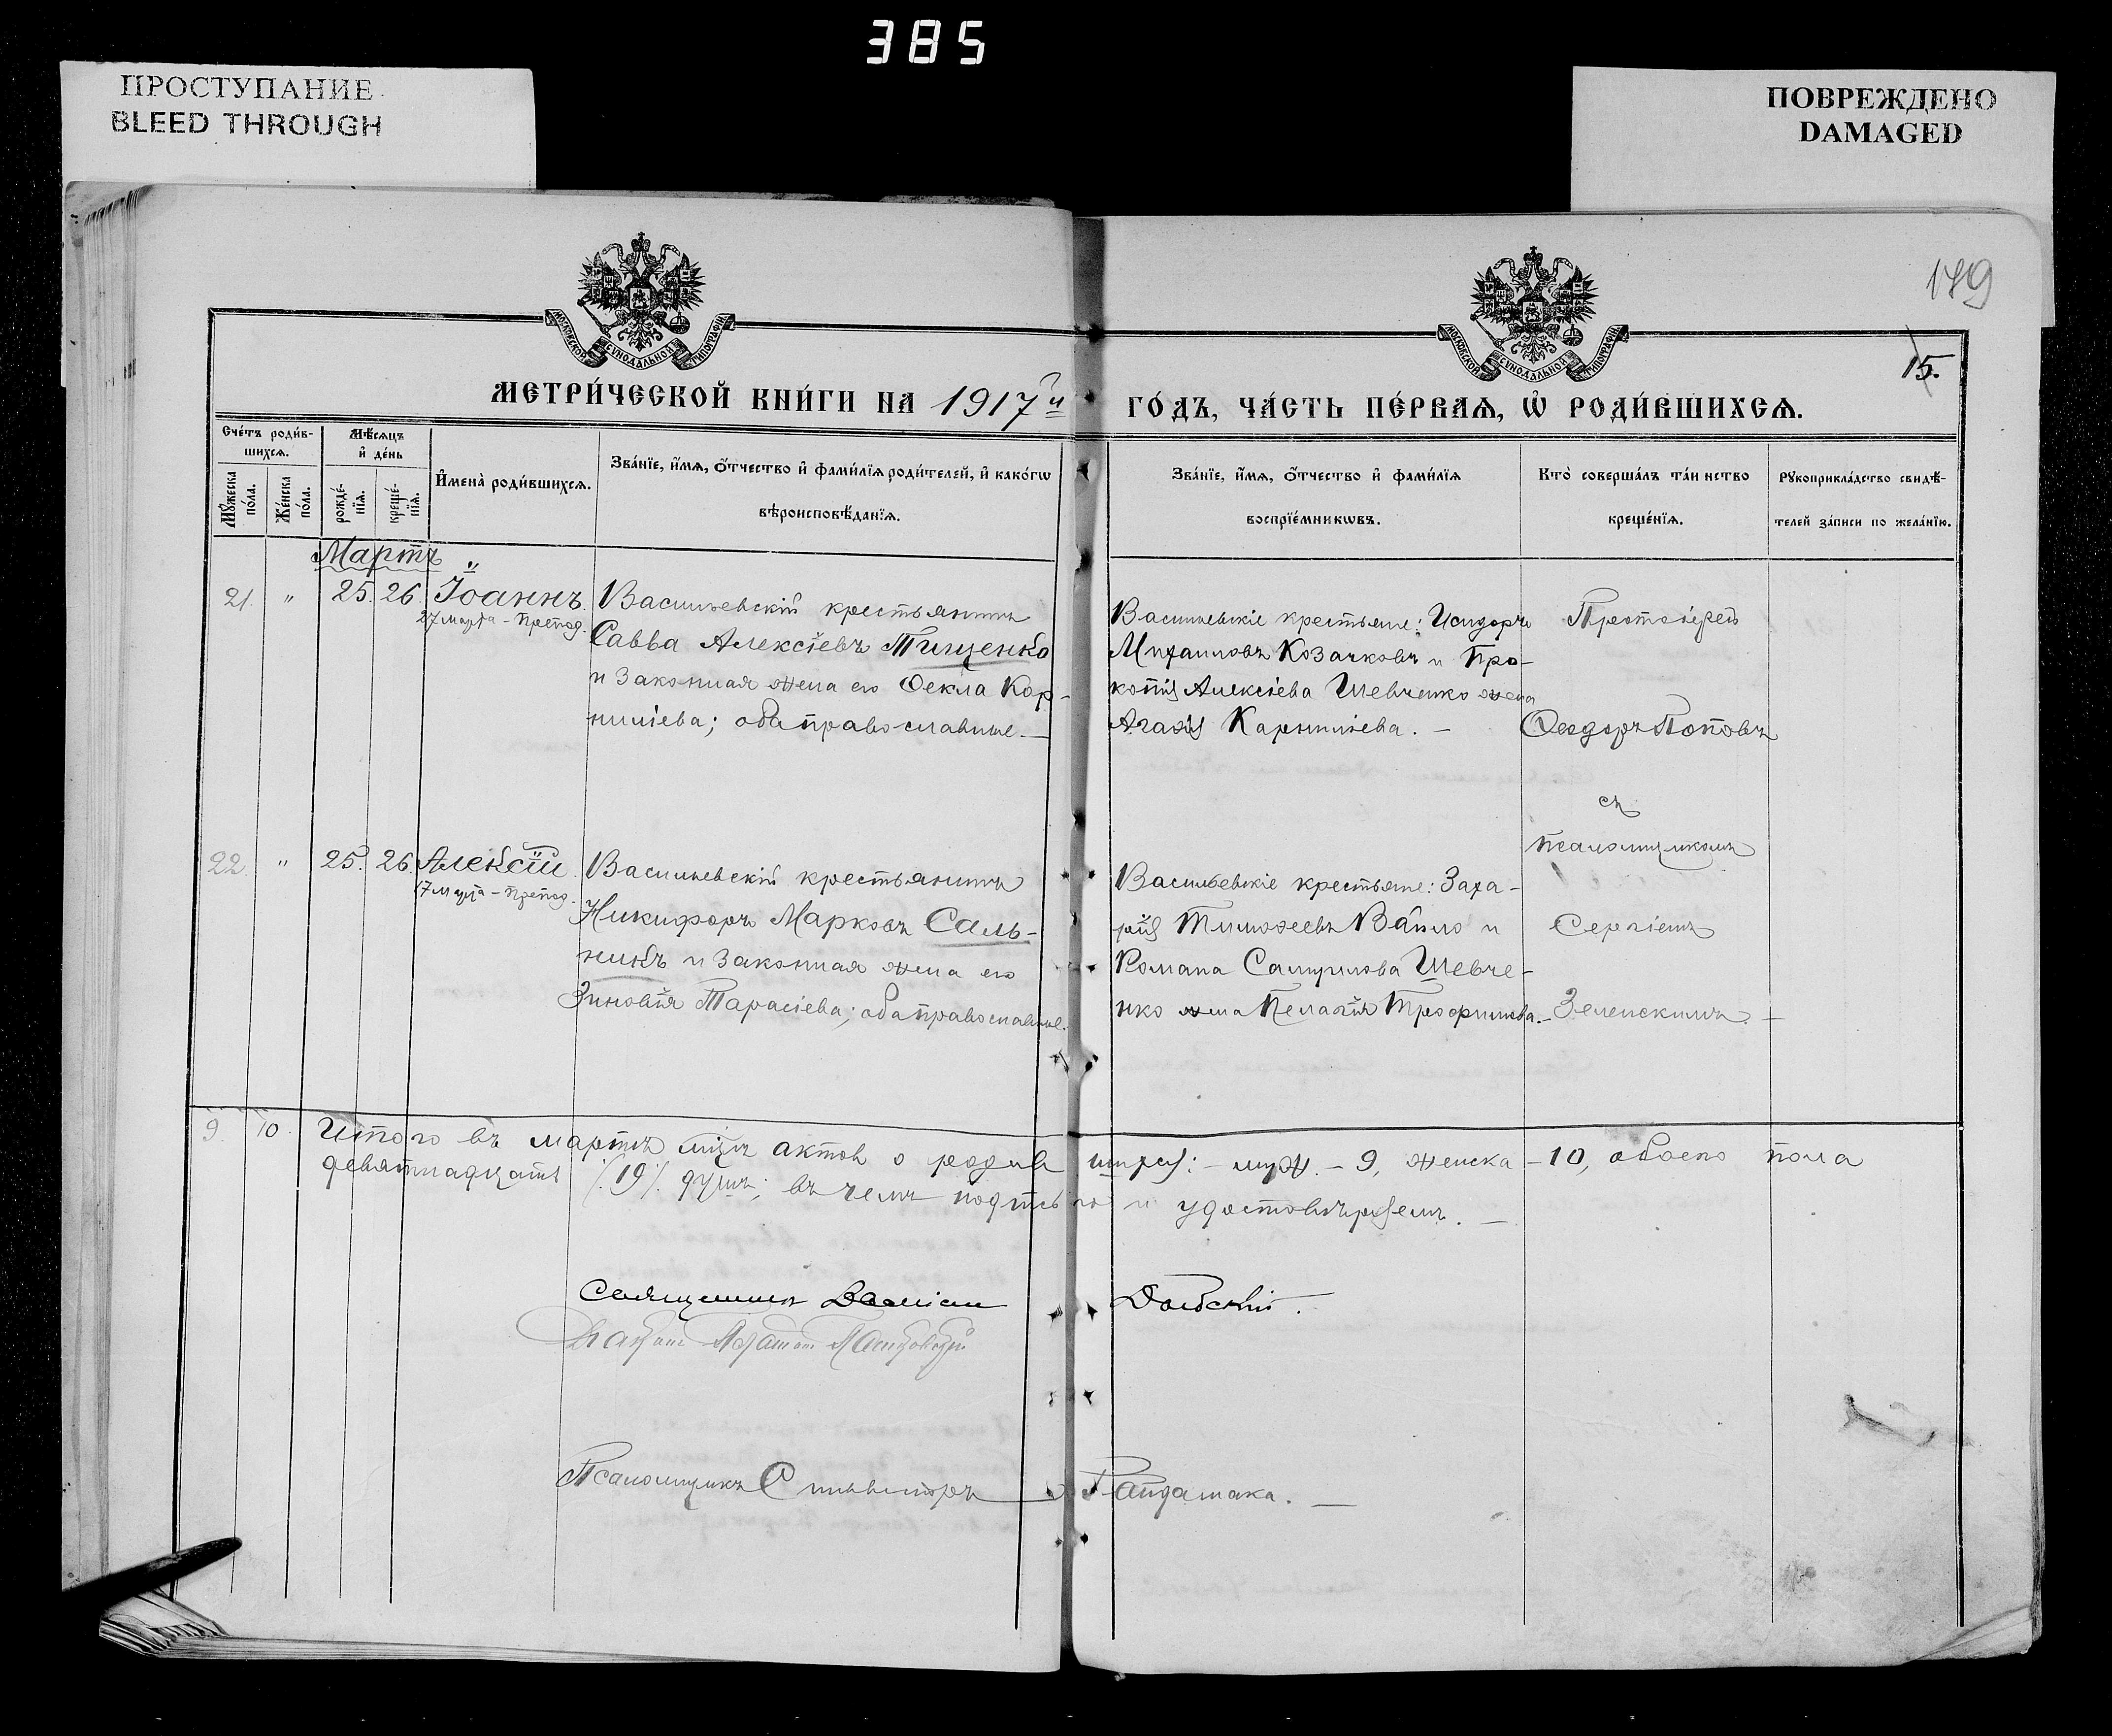 385
ПРОСТУПАНИЕ
BLEED THROUGH
ПОВРЕЖДЕНО
DAMAGED
179
15.
МОСКОВСКОЙ СѴНОДАЛЬНОЙ ТИПОГРАФІИ
МОСКОВСКОЙ СѴНОДАЛЬНОЙ ТИПОГРАФІИ
МЕТРИ́ЧЕСКОЙ КНИ́ГИ НА 1917й ГО́ДЪ, ЧА́СТЬ ПЕ́РВАѦ, Ѡ҆ РОДИ́ВШИХСѦ.
Сче́тъ роди́в-
шихсѧ.
Мꙋ́жеска по́ла.
Же́нска по́ла.
Мѣ́сѧцъ
и҆ де́нь
рожде́-
нїѧ.
креще́-
нїѧ.
И҆мена̀ роди́вшихсѧ.
Зва́нїе, и҆́мѧ, ѻ҆́тчество и҆ фами́лїѧ роди́телей, и҆ како́гѡ
вѣроисповѣ́данїѧ.
Зва́нїе, и҆́мѧ, ѻ҆́тчество и҆ фами́лїѧ
воспрїе́мникѡвъ.
Кто̀ соверша́лъ та́инство
креще́нїѧ.
Рꙋкоприкла́дство свидѣ́-
телей за́писи по жела́нїю.
Мартъ
21. " 25. 26. Іоаннъ.
27 марта - Препод.
Васильевскій крестьянинъ
Савва Алексіевъ Тищенко
и законная жена его Ѳекла Кор-
нилiева; оба православные. —
Васильевскіе крестьяне: Исидоръ
Михаиловъ Козачковъ и Про-
копія Алексіева Шевченко жена
Агафія Карниліева. -
Протоіерей
Ѳеодоръ Поповъ
съ
псаломщикомъ
Сергіемъ
Зеленскимъ. —
22. " 25. 26. Алексій
17 марта - Препод.
Васильевскій крестьянинъ
Никифоръ Марковъ Саль-
никъ и законная жена его
Зиновія Тарасіева; оба православные.
Васильевскіе крестьяне: Заха-
рія Тимоѳеевъ Вайло и
Романа Самуилова Шевче-
нко жена Пелагія Трофимова. -
9. 10. Итого въ мартѣ мцѣ актов о родив шихся: - муж. - 9, женска - 10, обоего пола
девятнадцать /.19/. душъ; въ чемъ подпись ю и удостовѣряемъ. —
Священникъ Дольскій.
Псаломщикъ Сильвестръ Гайдамака. —